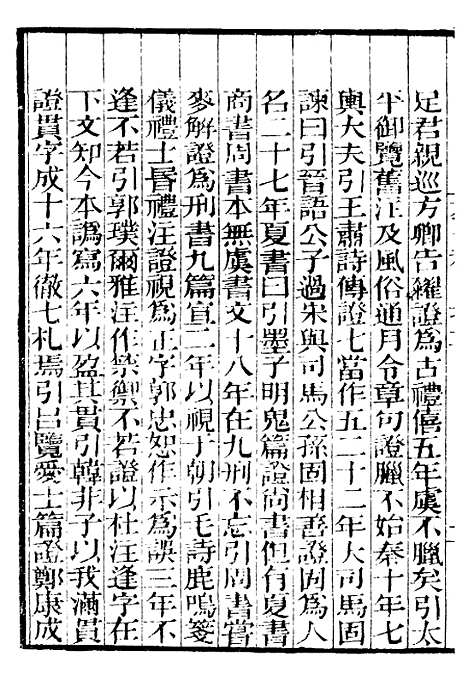 足君親巡方卿告糴證爲古禮僖五年虞不臘矣引太
平御覽舊注及風俗通月令章句證臘不始秦十年七
輿大夫引王肅詩傳證七當作五二十二年大司馬固
諫曰引晉語公子過宋與司馬公孫固相善證固爲人
名二十七年夏書曰引墨子明鬼篇證尚書但有夏書
商書周書本無虞書文十八年在九刑不忘引周書嘗
麥解證爲刑書九篇宣二年以視于朝引毛詩鹿鳴箋
儀禮士昬禮注證視爲正字郭忠恕作示爲誤三年不
逢不若引郭璞爾雅注作禁禦不若證以杜注逢字在
下文知今本譌寫六年以盈其貫引韓非子以我滿貫
證貫字成十六年徹七札焉引呂覽愛士篇證鄭康成